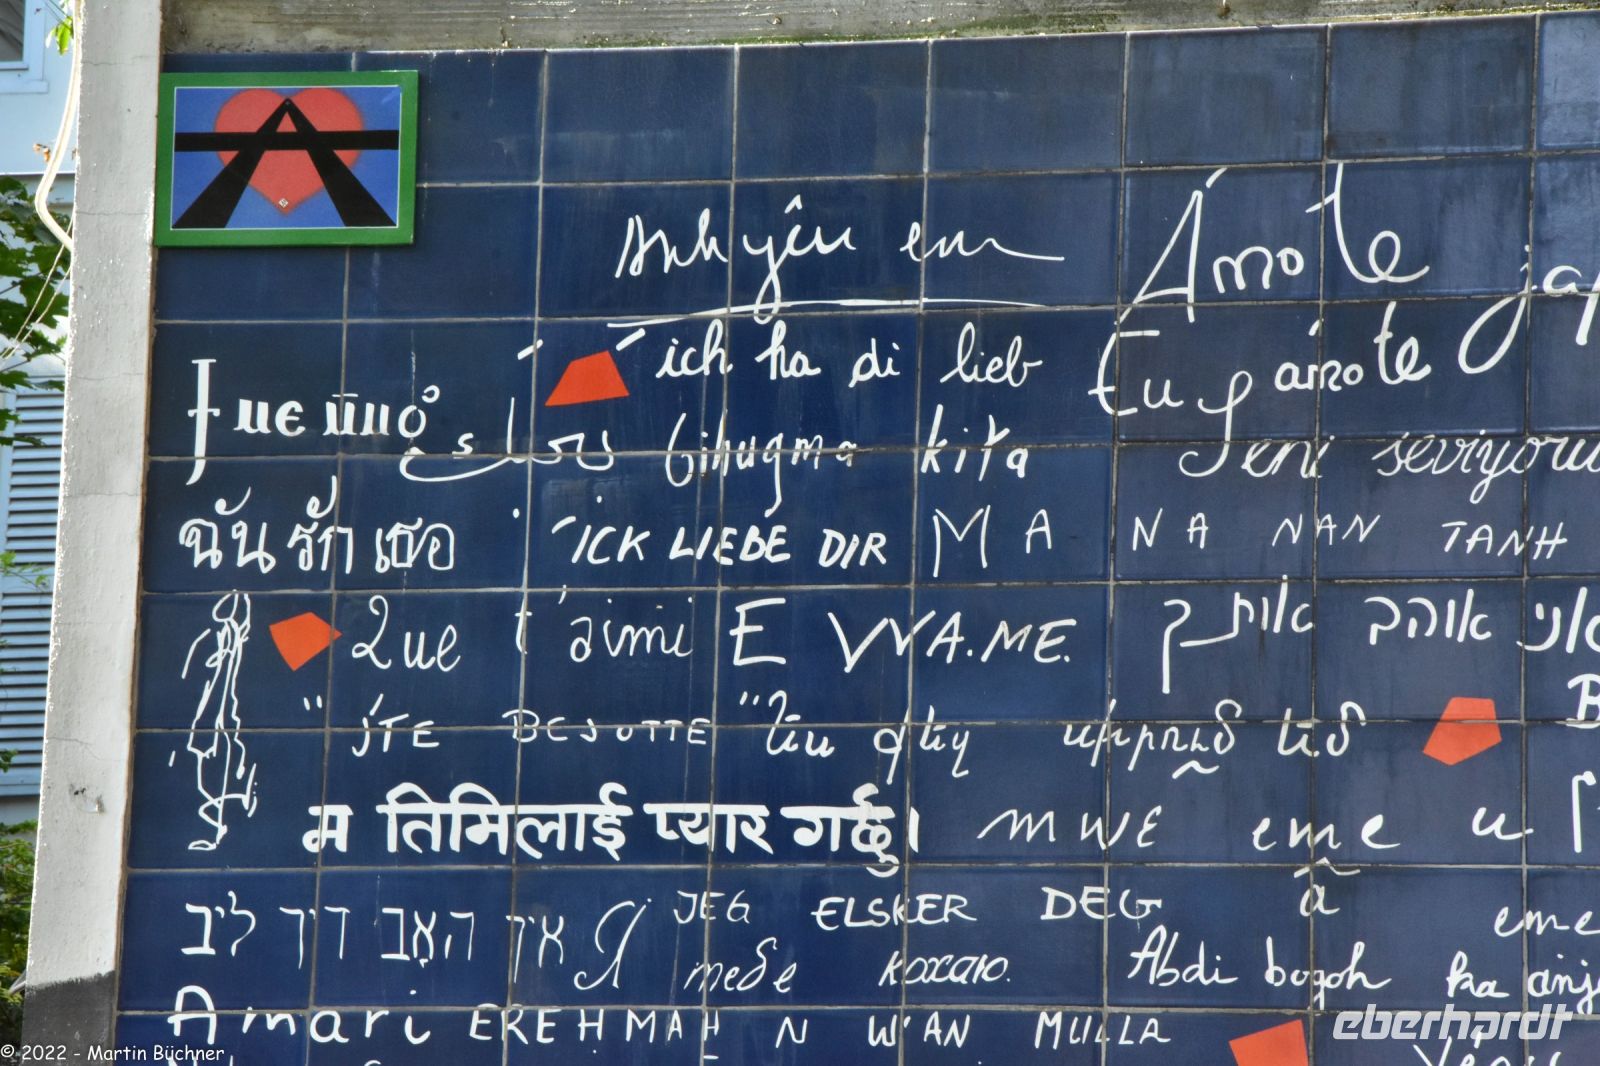 Anh yêu em
Amo te
ich ha di lieb
Eu amo te
Gihugma kita
Seni seviyorum
ฉันรักเธอ
ICK LIEBE DIR
MA NA NAN TANH
Que t'aimi
E WA.ME.
אני אוהב אותך
"j'TE BEJOTTE"
Ես քեզ սիրում եմ
म तिमिलाई प्यार गर्छु।
MWE eme u
איך האָב דיך ליב
JEG ELSKER DEG
â
eme
Я тебе кохаю.
Abdi bogoh ka anj
Amari EREHMAH N W'AN MULLA
eberhardt
© 2022 - Martin Büchner